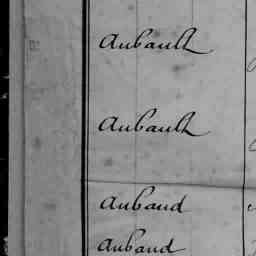 Aubault
Aubault
Aubaud
Aubaud